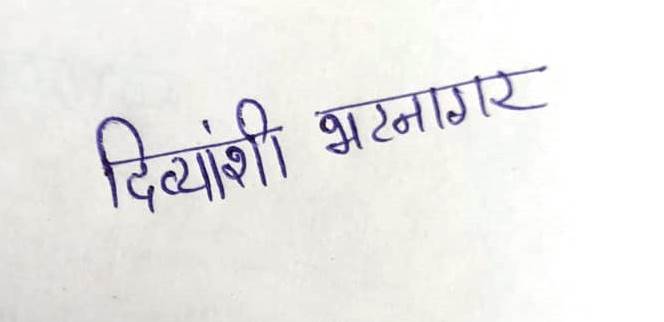 दिव्यांशी भटनागर